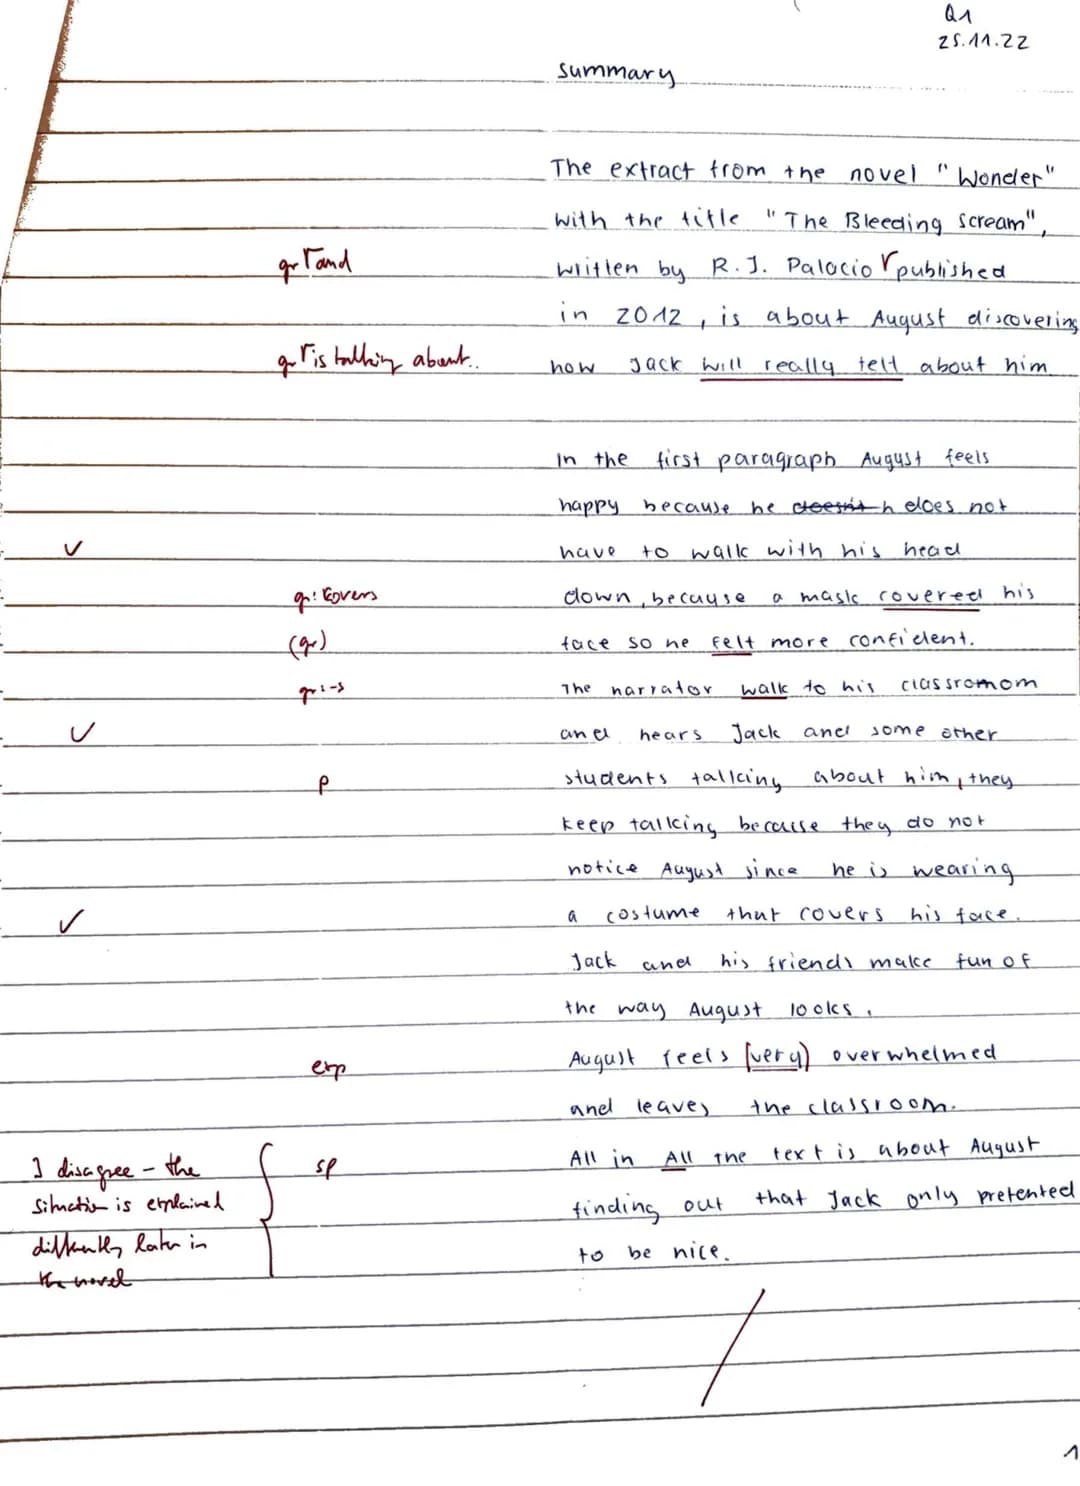 Q1
25.11.22
summary
The extract from the novel "Wonder"
with the title "The Bleeding scream",
gr Γand
written by R.J. Palacio Γpublished
in 2012, is about August discovering
gr Γis talking about..
how Jack will really telt about him
In the first paragraph August feels
happy because he doesn't h does not
✓
have to walk with his head
gr: covers
down, because a mask covered his
(gr)
face so he felt more confident.
gr: -s
The narrator walk to his classromom
✓
and hears Jack and some other
p
students talking about him, they
keep talking because they do not
notice August since he is wearing
✓
a costume that covers his face.
Jack and his friends make fun of
the way August looks.
exp
August feels (very) overwhelmed
and leaves the classroom.
I disagree - the
sp
All in All the text is about August
situation is explained
finding out that Jack only pretented
differently later in
to be nice.
the novel
1